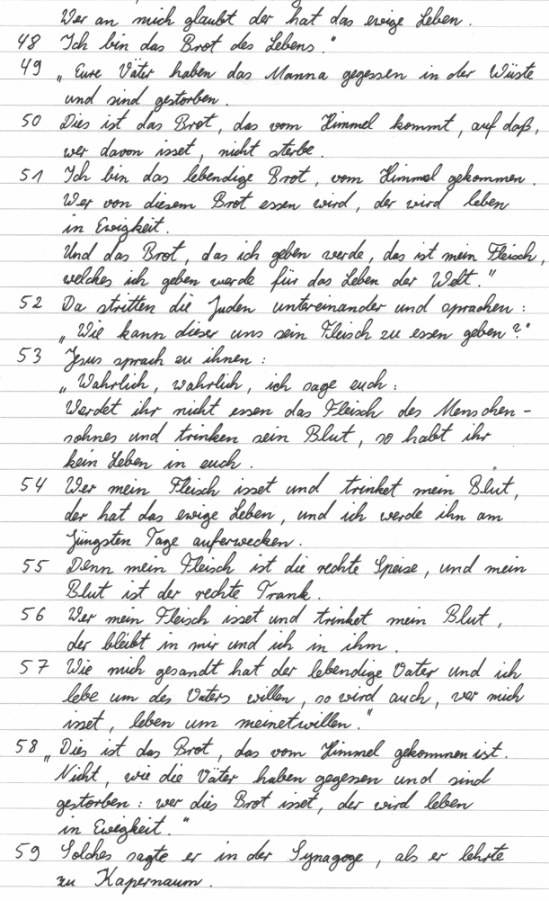 Wer an mich glaubt der hat das ewige Leben.
48 Ich bin das Brot des Lebens."
49 „Eure Väter haben das Manna gegessen in der Wüste
und sind gestorben.
50 Dies ist das Brot, das vom Himmel kommt, auf daß,
wer davon isset, nicht sterbe.
51 Ich bin das lebendige Brot, vom Himmel gekommen.
Wer von diesem Brot essen wird, der wird leben
in Ewigkeit.
Und das Brot, das ich geben werde, das ist mein Fleisch,
welches ich geben werde für das Leben der Welt."
52 Da stritten die Juden untereinander und sprachen:
„Wie kann dieser uns sein Fleisch zu essen geben?"
53 Jesus sprach zu ihnen:
„Wahrlich, wahrlich, ich sage euch:
Werdet ihr nicht essen das Fleisch des Menschen-
sohnes und trinken sein Blut, so habt ihr
kein Leben in euch.
54 Wer mein Fleisch isset und trinket mein Blut,
der hat das ewige Leben, und ich werde ihn am
Jüngsten Tage auferwecken.
55 Denn mein Fleisch ist die rechte Speise, und mein
Blut ist der rechte Trank.
56 Wer mein Fleisch isset und trinket mein Blut,
der bleibt in mir und ich in ihm.
57 Wie mich gesandt hat der lebendige Vater und ich
lebe um des Vaters willen, so wird auch, wer mich
isset, leben um meinetwillen."
58 „Dies ist das Brot, das vom Himmel gekommen ist.
Nicht, wie die Väter haben gegessen und sind
gestorben: wer dies Brot isset, der wird leben
in Ewigkeit."
59 Solches sagte er in der Synagoge, als er lehrte
zu Kapernaum.